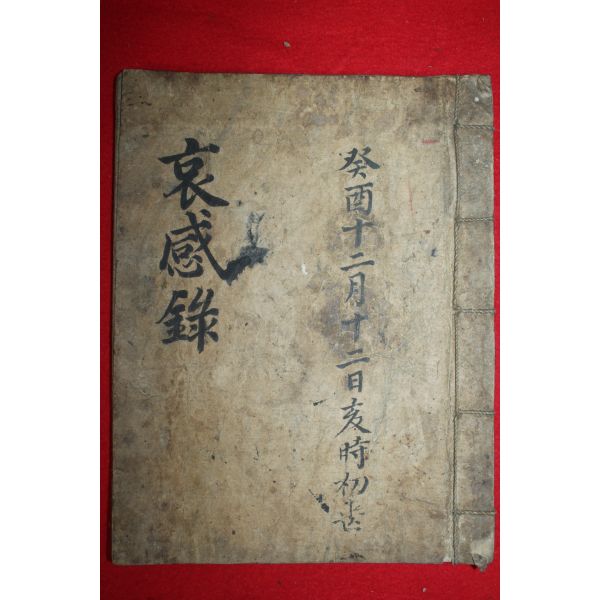 癸酉十二月十二日亥時初
哀感錄